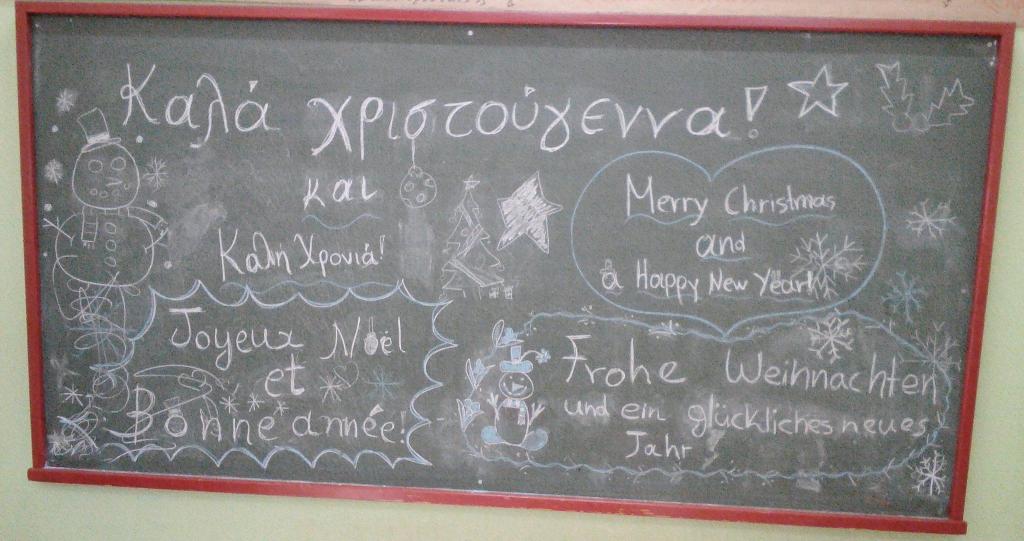 Καλά χριστούγεννα!
και
Καλή Χρονιά!
Merry Christmas
and
a Happy New Year!
Joyeux Noël
et
Bonne année!
Frohe Weihnachten
und ein glückliches neues
Jahr